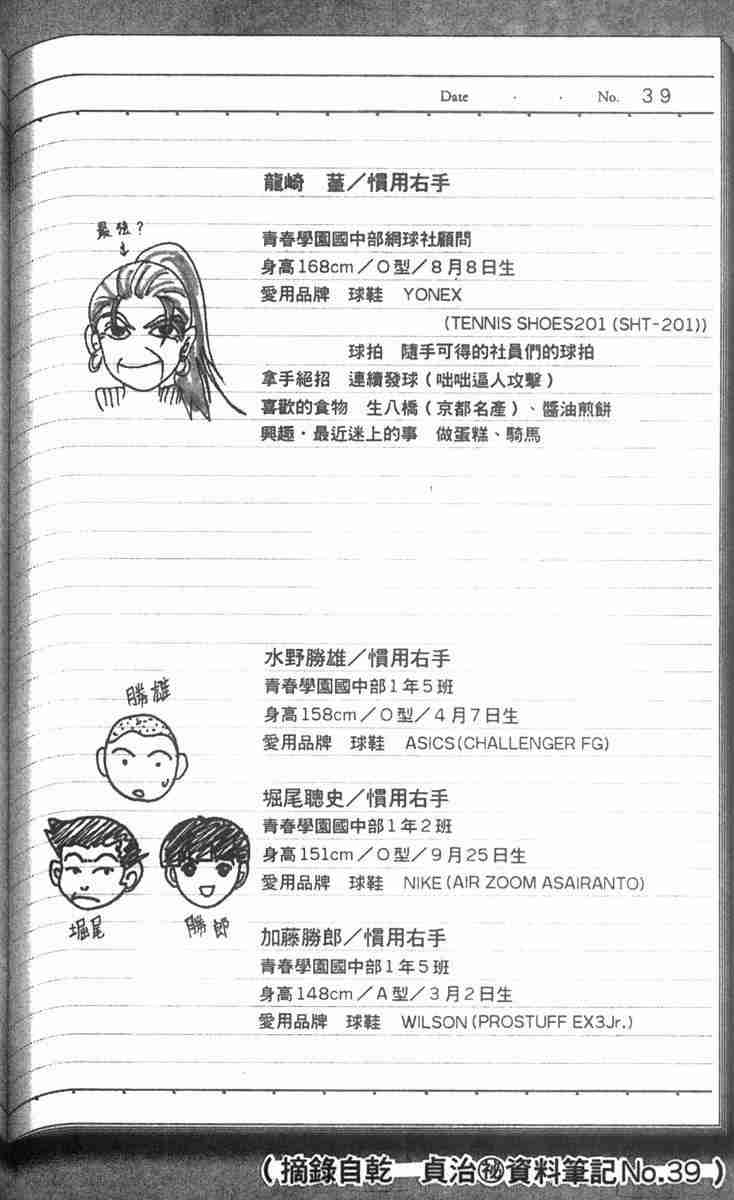 Date . . No. 39
龍崎 菫／慣用右手
最強？
↓
青春學園國中部網球社顧問
身高168cm／O型／8月8日生
愛用品牌 球鞋 YONEX
(TENNIS SHOES201 (SHT-201))
球拍 隨手可得的社員們的球拍
拿手絕招 連續發球（咄咄逼人攻擊）
喜歡的食物 生八橋（京都名產）、醬油煎餅
興趣・最近迷上的事 做蛋糕、騎馬
水野勝雄／慣用右手
青春學園國中部1年5班
身高158cm／O型／4月7日生
愛用品牌 球鞋 ASICS(CHALLENGER FG)
勝雄
堀尾聰史／慣用右手
青春學園國中部1年2班
身高151cm／O型／9月25日生
愛用品牌 球鞋 NIKE(AIR ZOOM ASAIRANTO)
堀尾
勝郎
加藤勝郎／慣用右手
青春學園國中部1年5班
身高148cm／A型／3月2日生
愛用品牌 球鞋 WILSON(PROSTUFF EX3Jr.)
（摘錄自乾 貞治㊙資料筆記No.39）